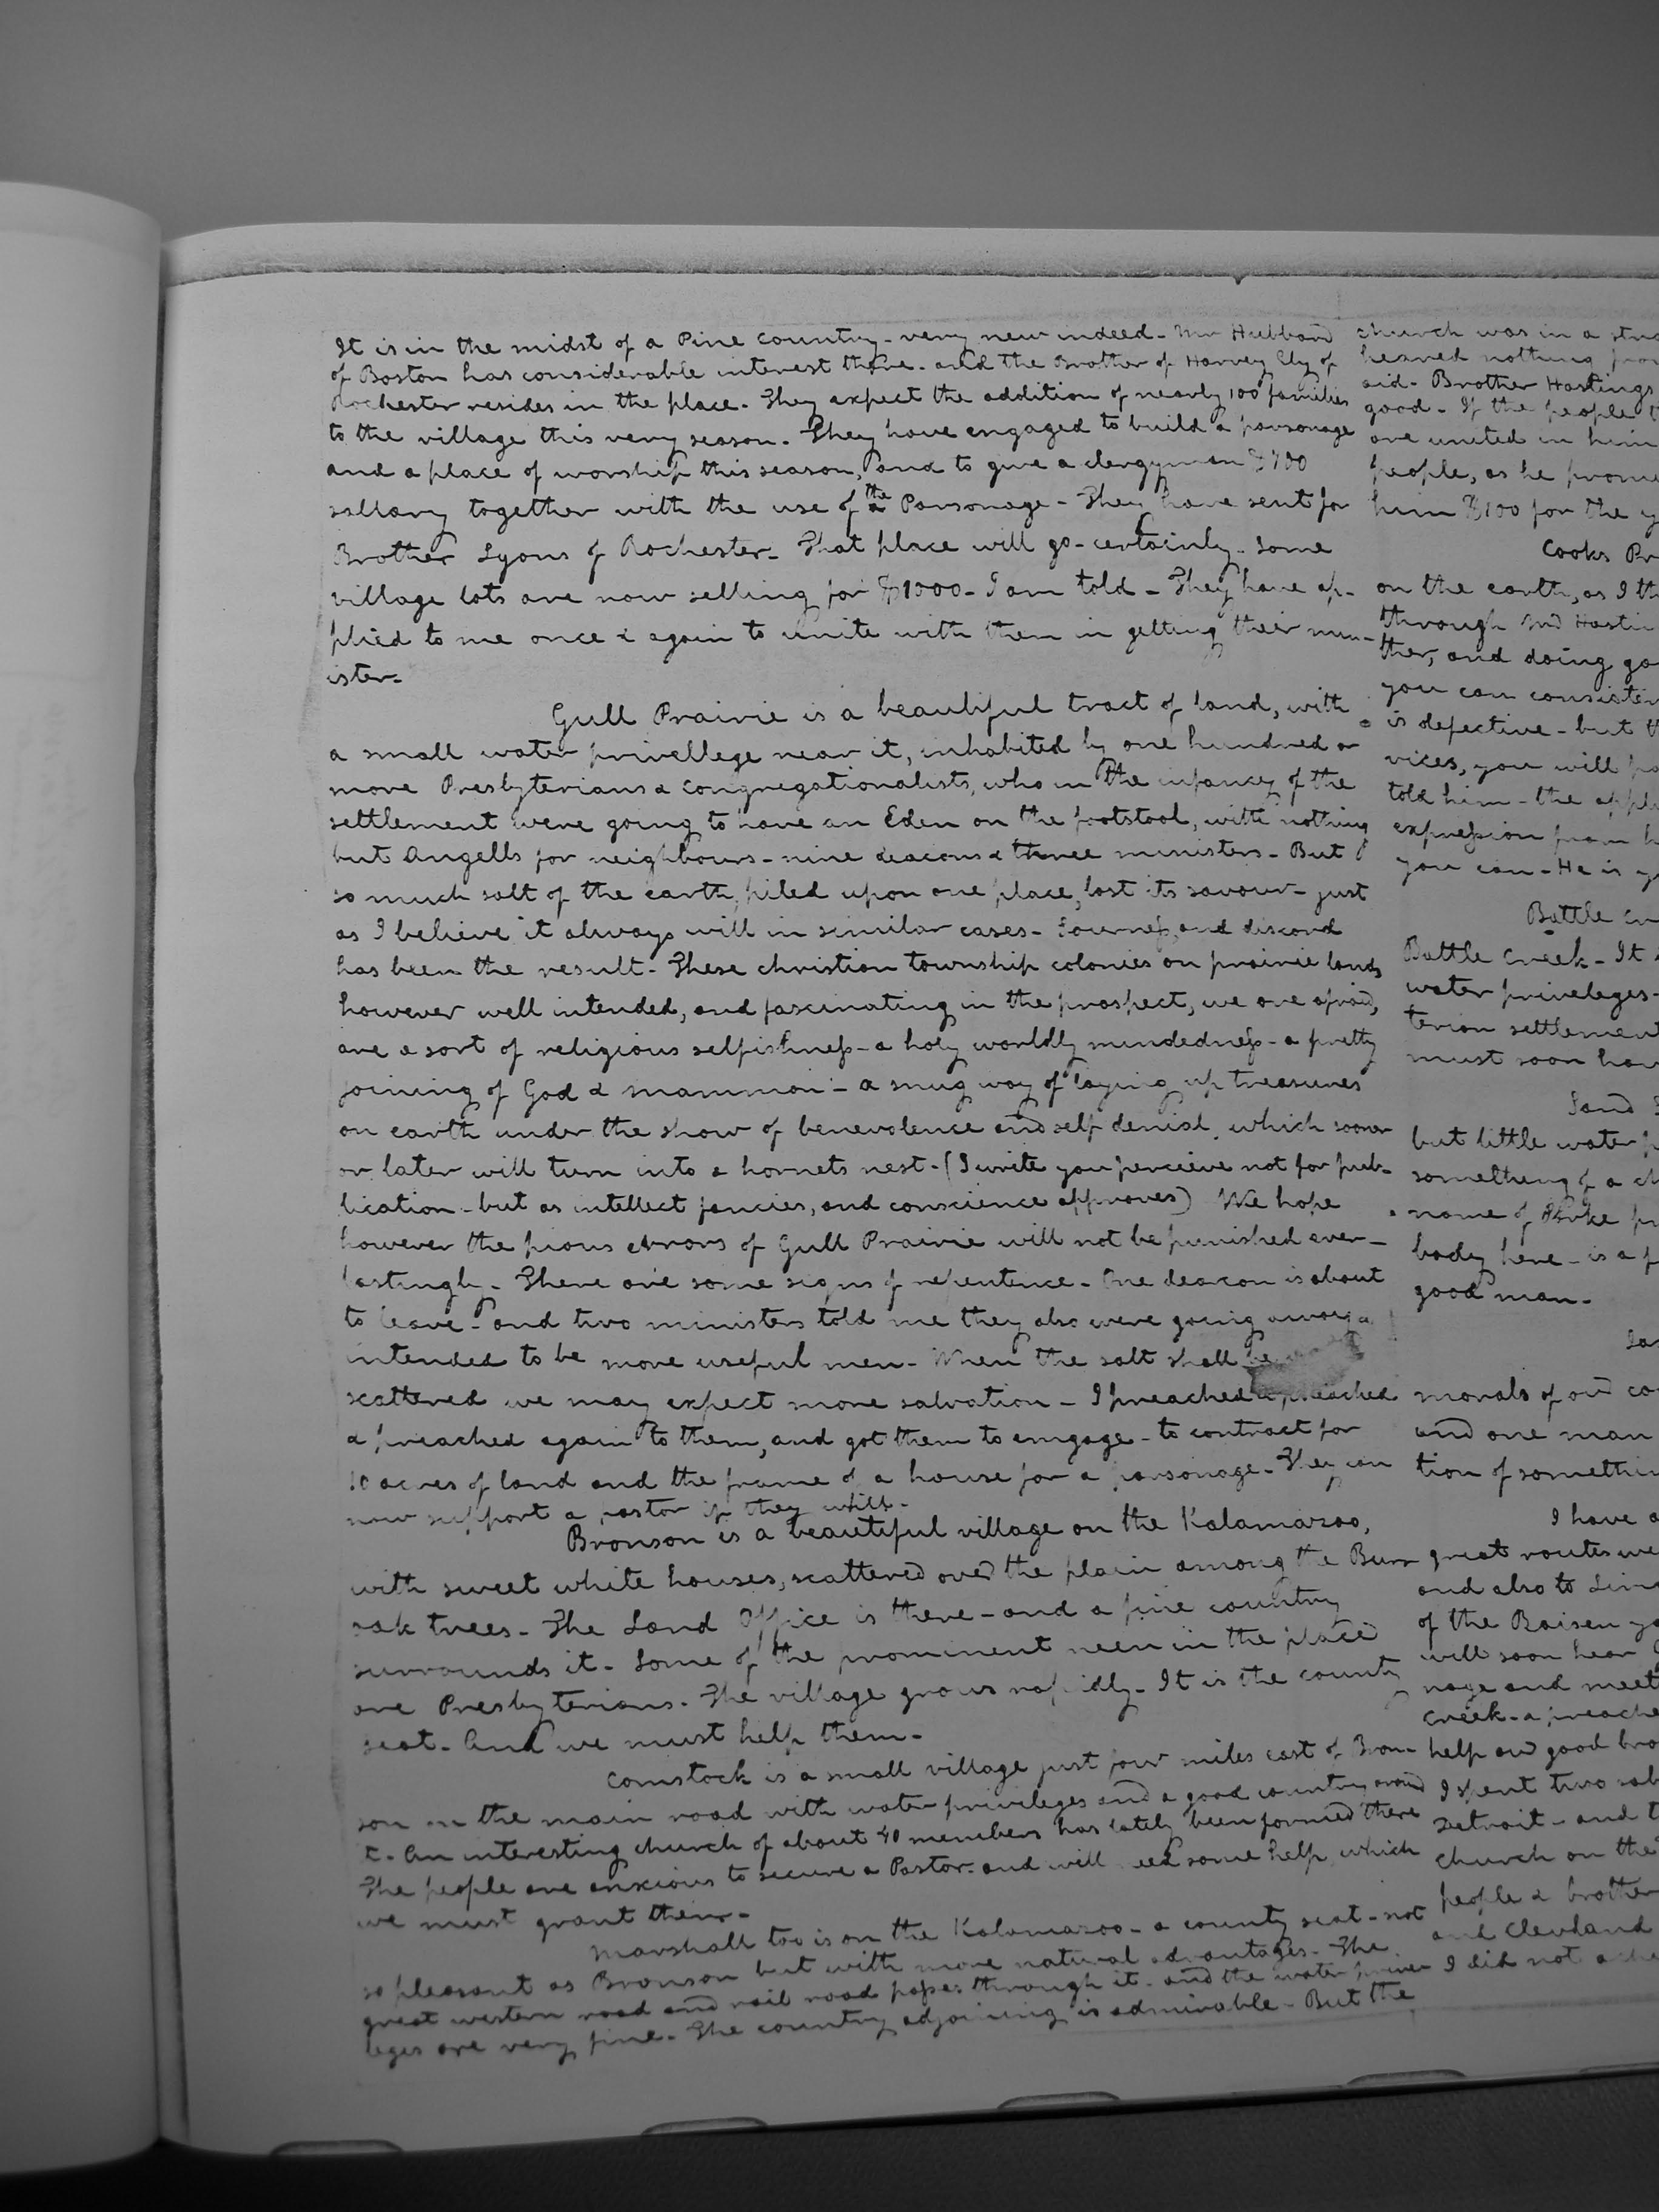 It is in the midst of a Pine country - very new indeed - Mr Hubbard
of Boston has considerable interest there - and the Brother of Harvey Ely of
Rochester resides in the place - They expect the addition of nearly 100 families
to the village this very season - They have engaged to build a parsonage
and a place of worship this season, and to give a clergyman
sallary together with the use of the Parsonage - They have sent for
Brother Lyons of Rochester - That place will go - certainly - Some
village lots are now selling for $1000 - I am told - They have ap-
plied to me once & again to unite with them in getting their min-
ister -
Gull Prairie is a beautiful tract of land, with
a small water privellege near it, inhabited by one hundred or
more Presbyterians & Congregationalists, who in the infancy of the
settlement were going to have an Eden on the footstool, with nothing
but Angells for neighbours - nine deacons & three ministers - But
so much salt of the earth, piled upon one place, lost its savour - just
as I believe it always will in similar cases - Sourness, and discord
has been the result - These christian township colonies on prairie lands
however well intended, and fascinating in the prospect, we are afraid,
are a sort of religious selfishness - a holy worldly mindedness - a pretty
joining of God & mammon - a snug way of laying up treasures
on earth under the show of benevolence and self denial, which sooner
or later will turn into a hornets nest - (I write you perceive not for pub-
lication - but as intellect fancies, and conscience approves) We hope
however the pious errors of Gull Prairie will not be punished ever-
lastingly - There are some signs of repentence - One deacon is about
to leave - and two ministers told me they also were going away &
intended to be more useful men - When the salt shall be
scattered we may expect more salvation - I preached & preached
& preached again to them, and got them to engage - to contract for
10 acres of land and the frame of a house for a parsonage - They can
now support a pastor if they will -
Bronson is a beautiful village on the Kalamazoo,
with sweet white houses, scattered over the plain among the Burr
oak trees - The Land Office is there - and a fine country
surrounds it - Some of the prominent men in the place
are Presbyterians - The village grows rapidly - It is the county
seat - And we must help them -
Comstock is a small village just four miles east of Bron-
son on the main road with water privileges and a good country around
it - An interesting church of about 40 members has lately been formed there
The people are anxious to secure a Pastor - and will need some help which
we must grant them -
Marshall too is on the Kalamazoo - a county seat - not
so pleasant as Bronson but with more natural advantages - The
great western road and rail road passes through it - and the water prive-
leges are very fine - The country adjoining is admirable - But the
church was in a
hearned nothing
aid - Brother Hastings
good - If the people
are united in him
people, as he
him $100 for the
Cooks
on the earth, as I
through
ther, and doing
you can
is defective - but
vices, you will
told him - the
expression from
you can - He is
Battle
Battle Creek - It
water priveleges -
terian settlement
must soon
Sand
but little water
something of a
name of
body here - is a
good man -
morals of our
and one man
tion of
I have
great routes
and also to
of the Raisen
will soon hear
nage and meet
Creek - a
help our good
I spent two
Detroit - and
church on the
people & brother
and Clevland
I did not